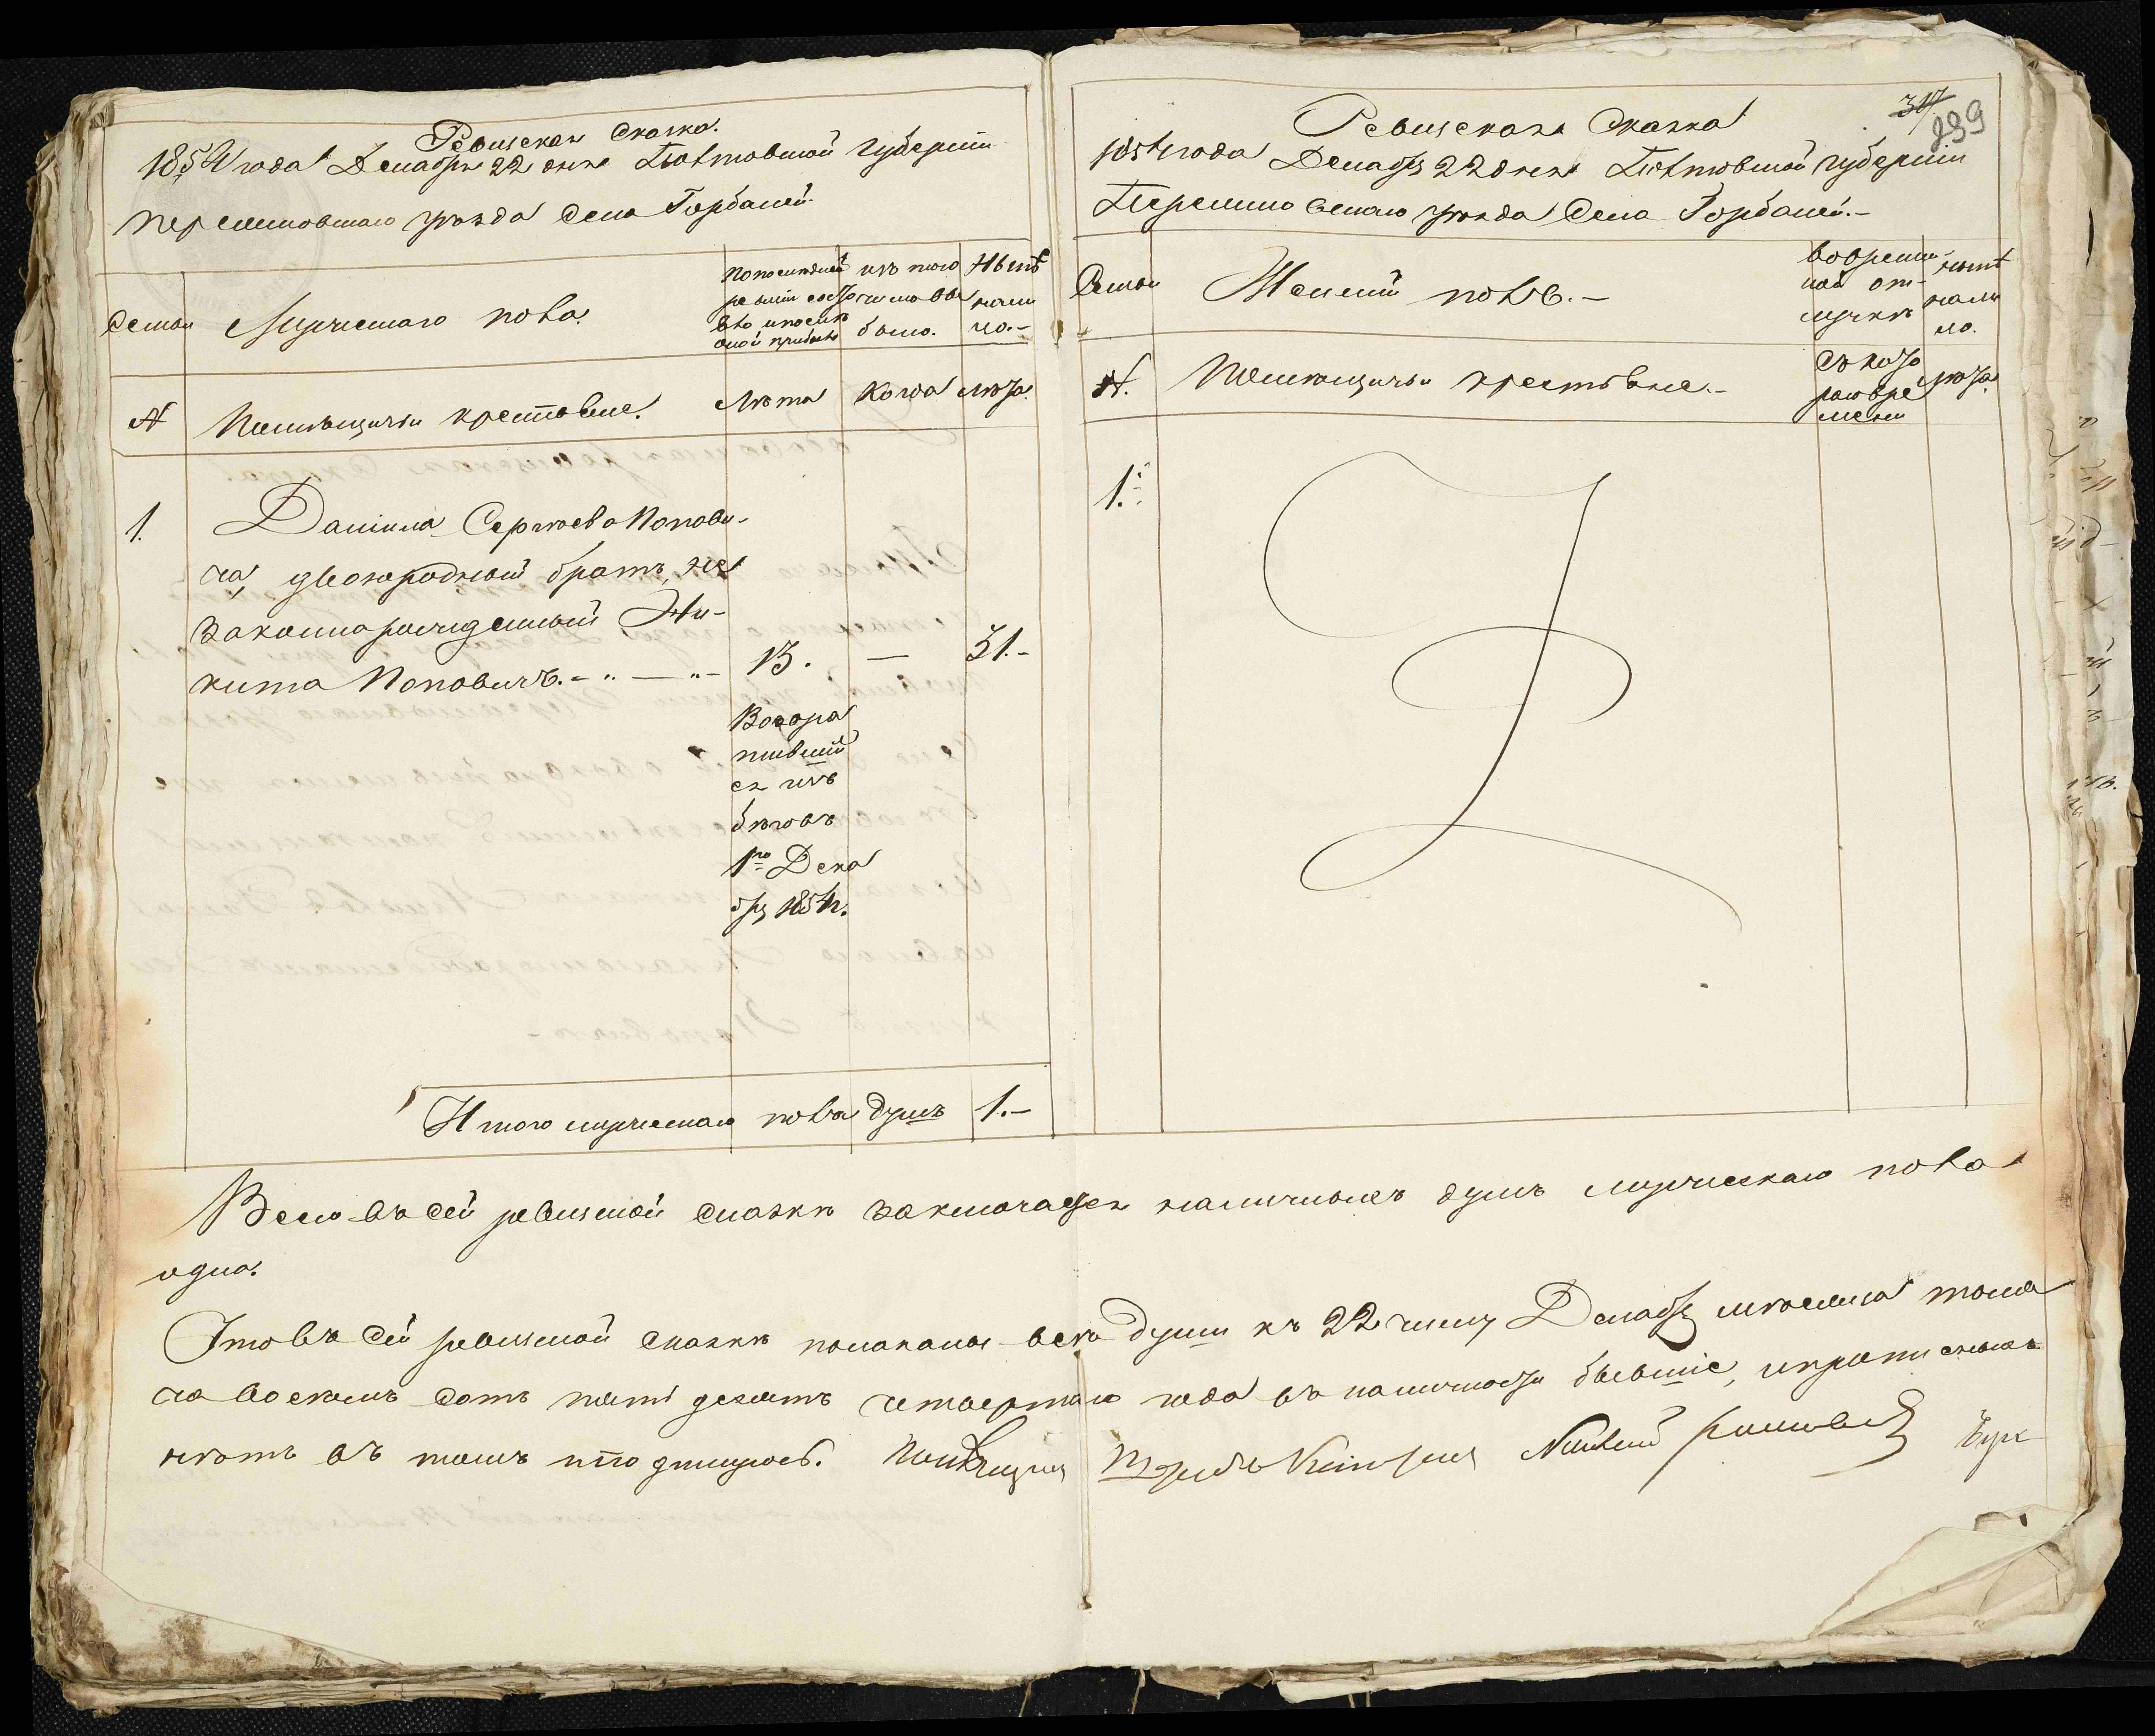 Ревизская сказка.
1854 года Декабря 22 дня Полтавской губернии
Переяславскаго уезда села Горбаней.
Семьи
Мужескаго пола.
По последней
ревизии состо
яло и после
оной прибыло
изъ того
числа вы
было.
Ныне
нали
цо.-
№
Помещичьи крестьяне.
Лета
Когда
Лета.
1.
Данiила Сергеева Попови-
ча, двоюродный братъ, не
законнорожденный Ни-
кита Поповичъ. - „ — „ -
13.
—
31.-
Возвра
тивший
ся изъ
беговъ
1го Дека
бря 1854 г.
Итого мужескаго пола душъ
1.-
317
239
Ревизская Сказка
1854 года Декабря 22 дня Полтавской губернiи
Переяславскаго уезда Села Горбаней.-
Семьи
Женский полъ.-
Во времен-
ной от-
лучке
ныне
нали
цо.
№.
Помещичьи крестьяне.-
Съ кото
раго вре
мени
Лета.
1.
Всего въ сей ревизской сказке заключается наличныхъ душъ мужескаго пола
одна.
Что въ сей ревизской сказке показаны все души къ 22 числу Декабря месяца тыся
ча восемь сотъ пятьдесятъ четвертаго года въ наличности бывшiе, и прописныхъ
нетъ въ томъ подпишуюсь. Помещица